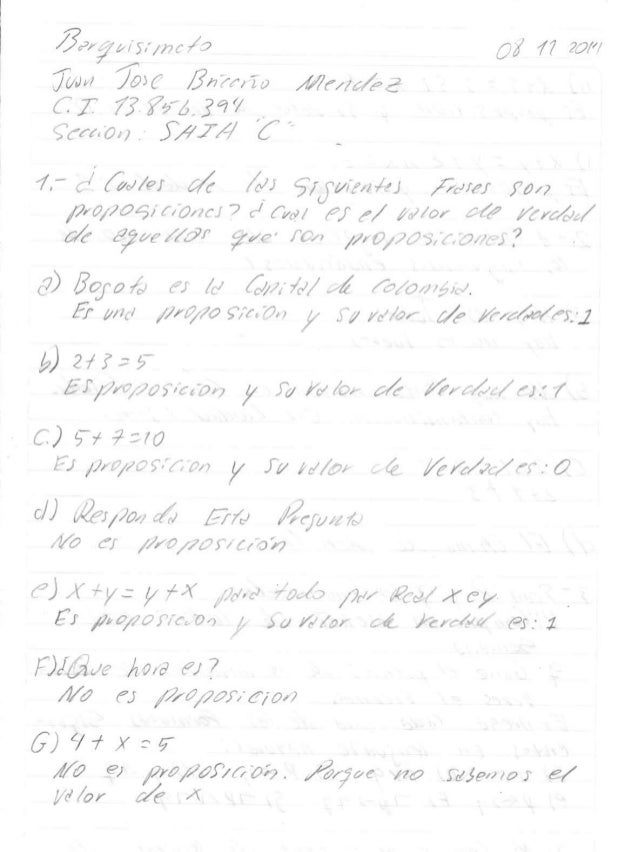 Barquisimeto 08 11 2011
Juan Jose Briceño Mendez
C.I. 13.856.394
Sección: SAIA "C"
1.- ¿ Cuales de las siguientes Frases son
proposiciones? ¿ cual es el valor de verdad
de aquellas que son proposiciones?
a) Bogota es la Capital de Colombia.
Es una proposición y su valor de verdad es: 1
b) 2+3=5
Es proposición y su valor de verdad es: 1
C.) 5+7=10
Es proposicion y su valor de Verdad es: 0
d) Responda Esta Pregunta
No es proposición
e) x+y = y+x para todo par Real x e y
Es proposicion y su valor de verdad es: 1
F) ¿Que hora es?
No es proposicion
G) 4 + x = 5
No es proposición. Porque no sabemos el
valor de x